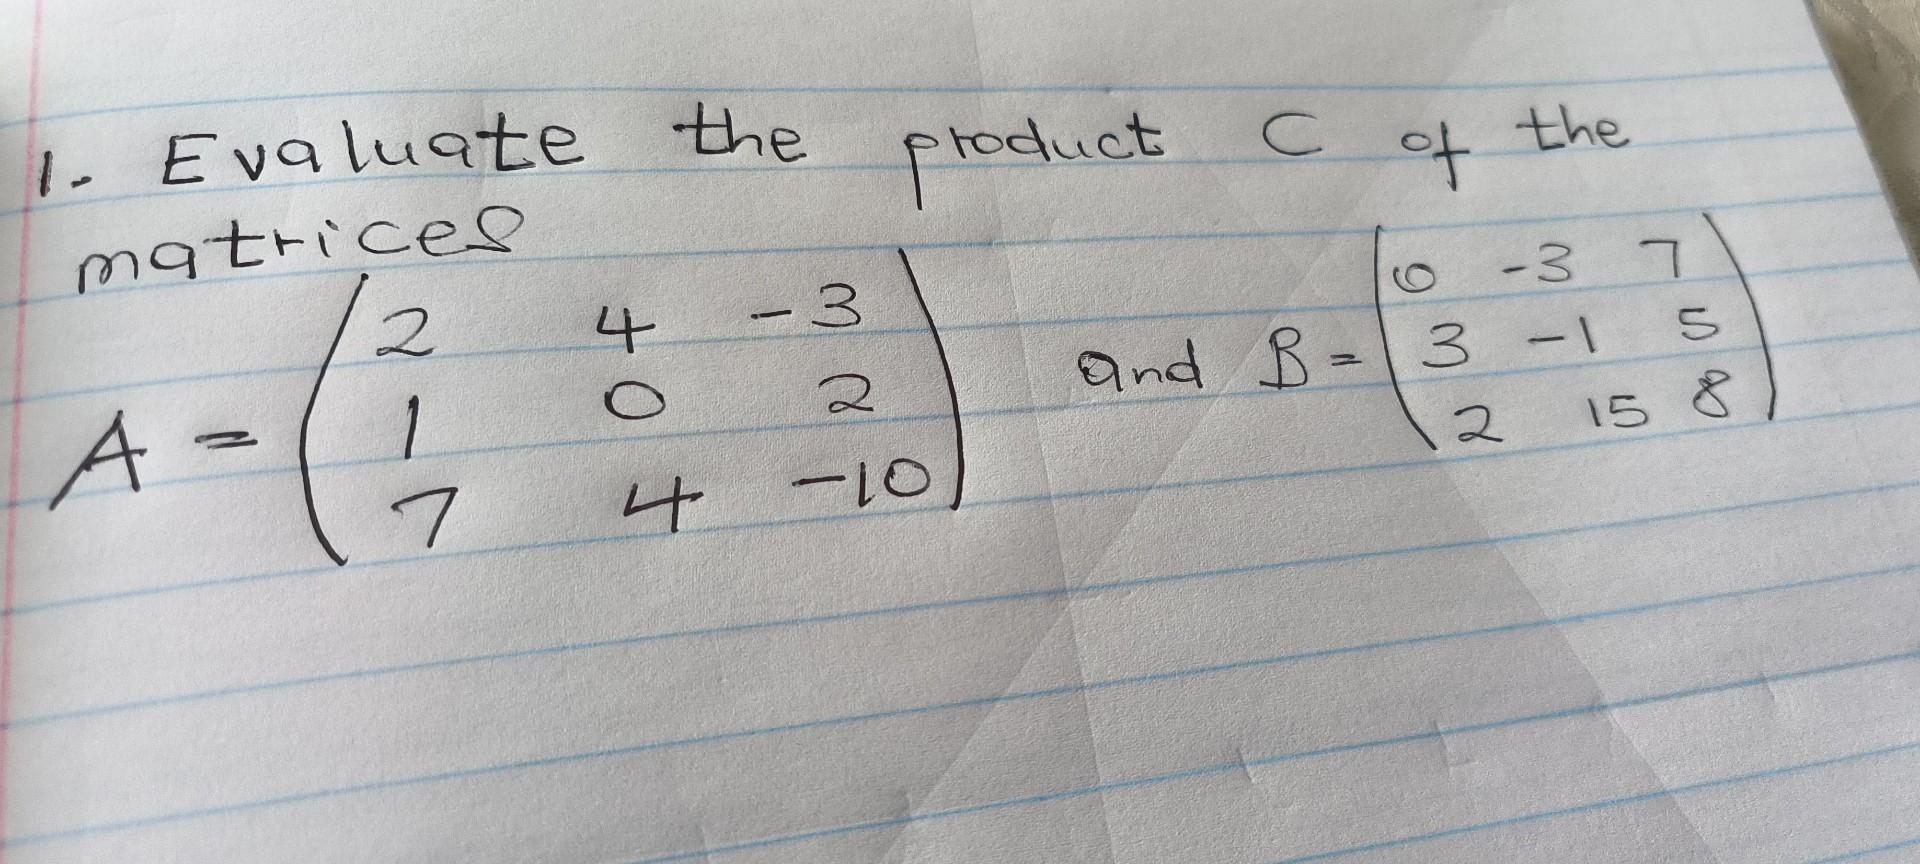 1. Evaluate the product C of the
matrices
A = (2 4 -3
1 0 2
7 4 -10) and B = (0 -3 7
3 -1 5
2 15 8)